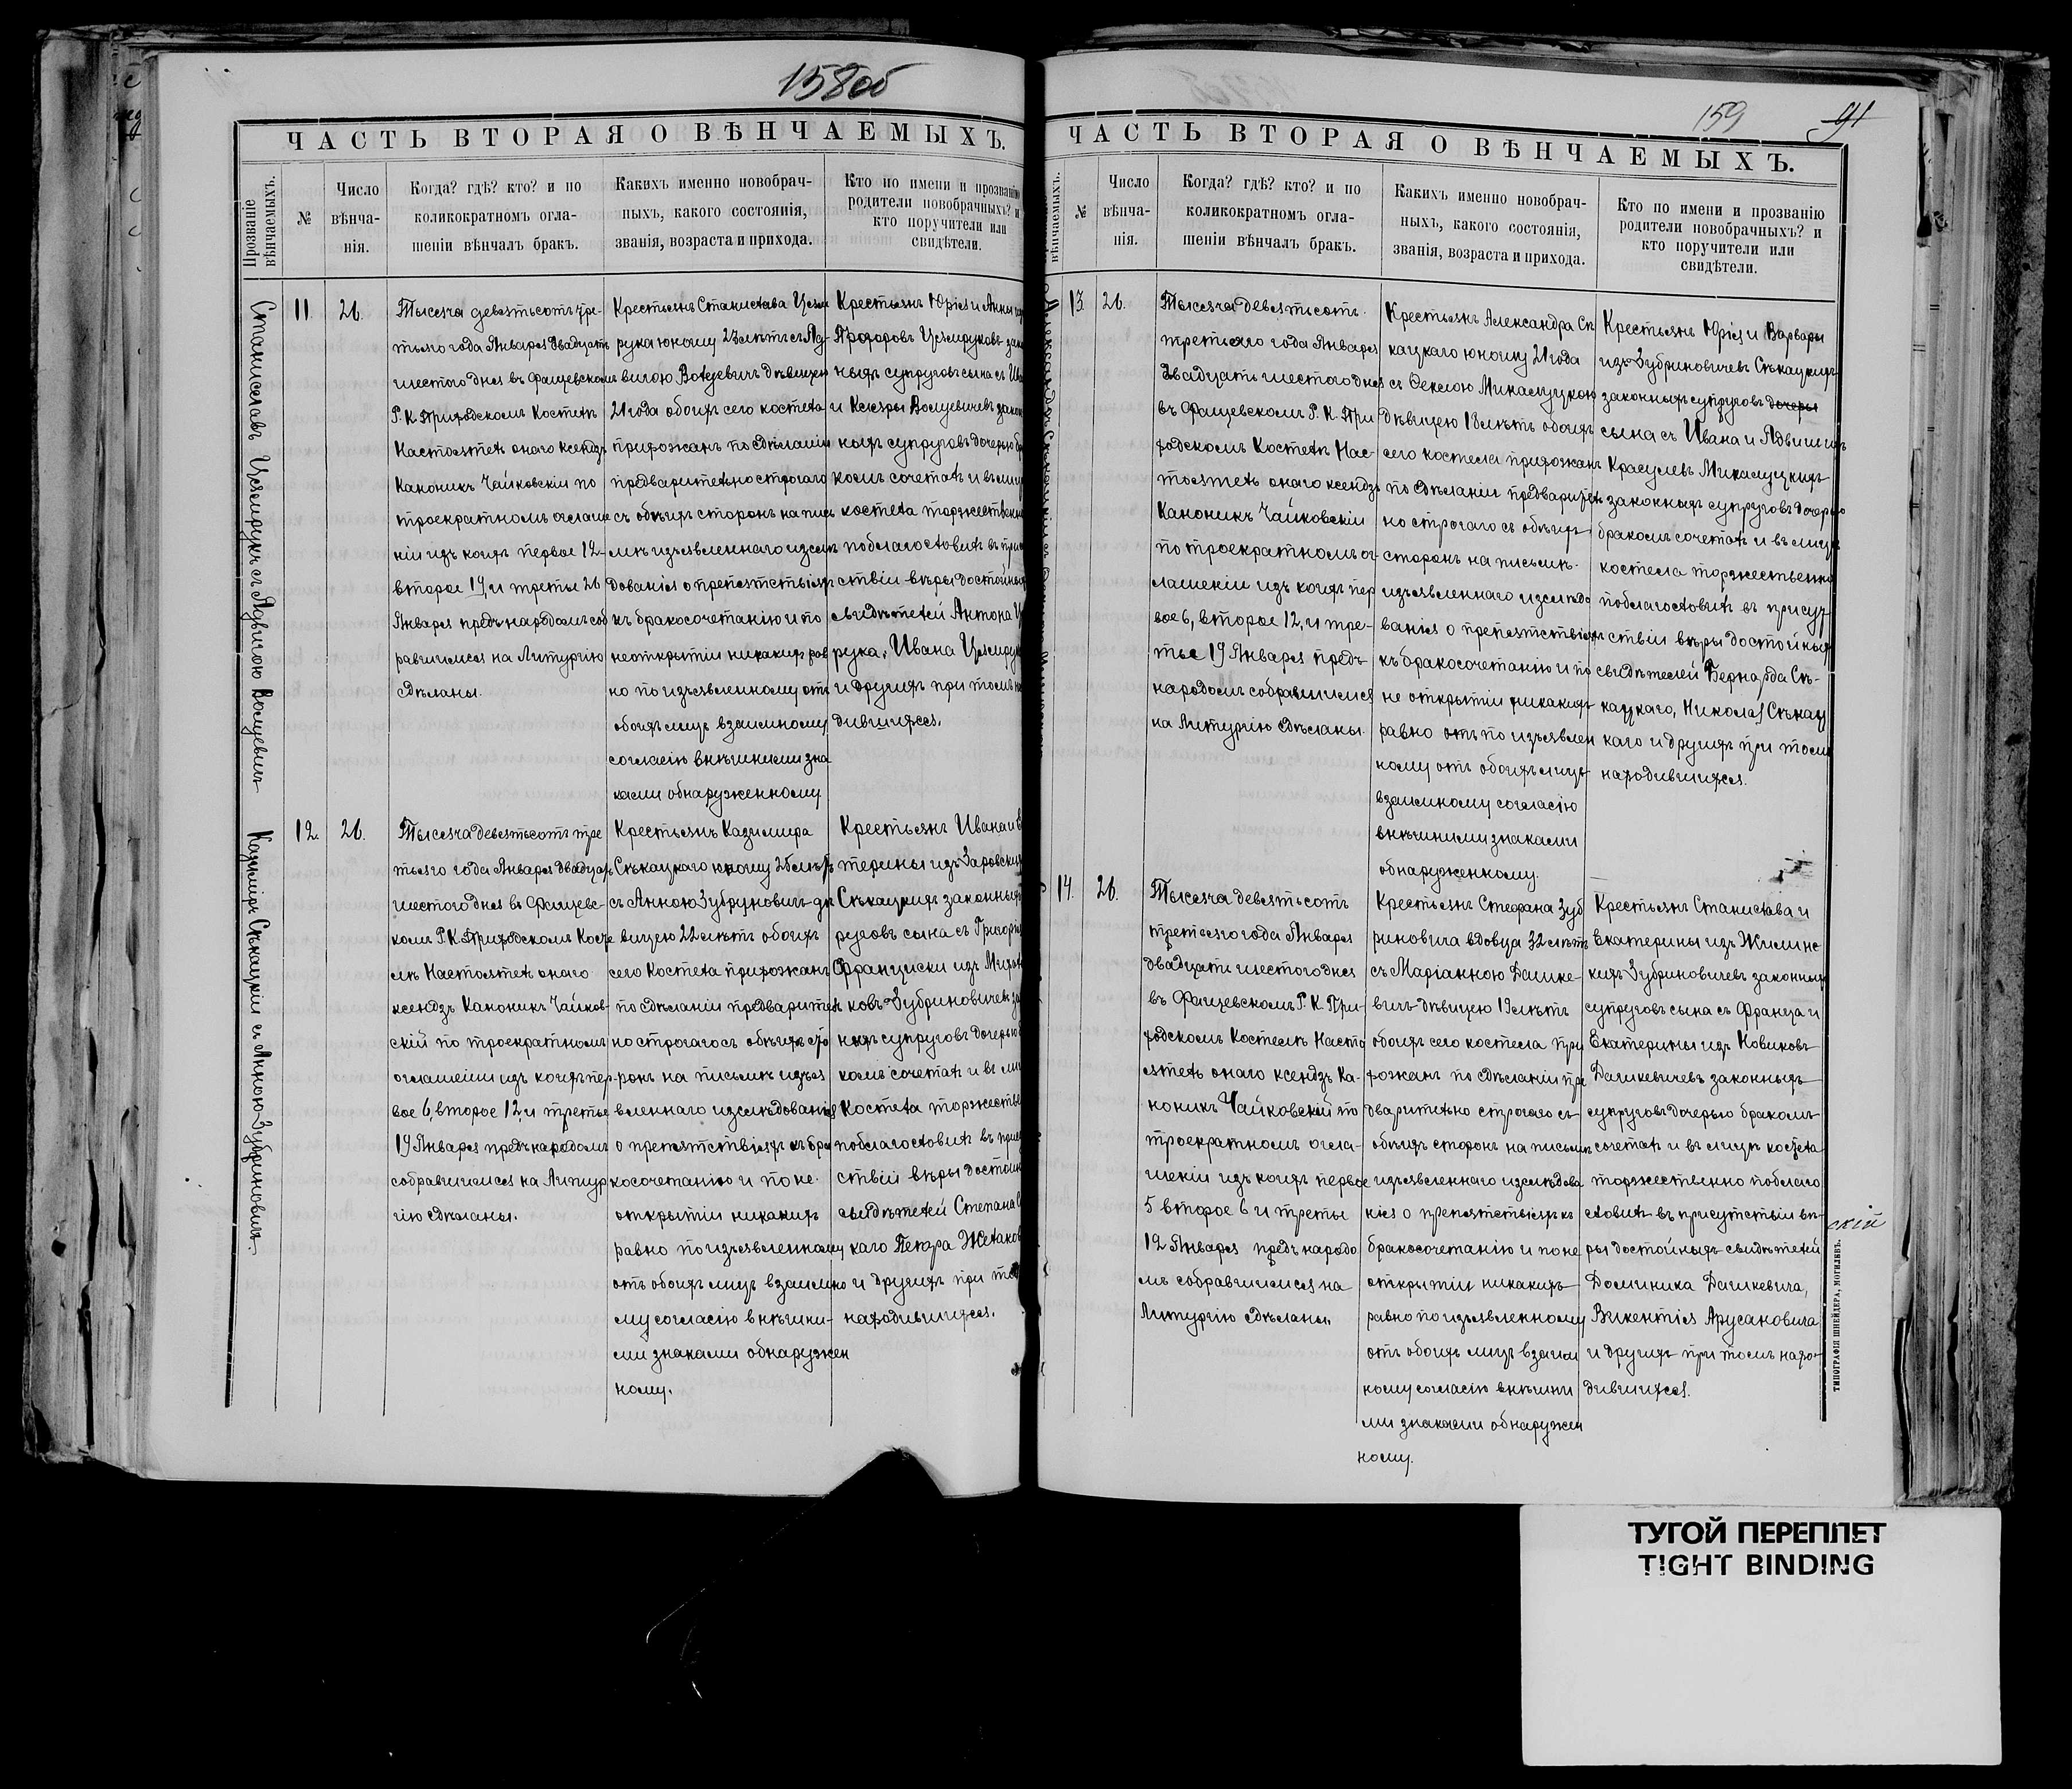 158об
ЧАСТЬ ВТОРАЯ О ВѢНЧАЕМЫХЪ.
Прозваніе
вѣнчаемыхъ.
№
Число
вѣнча-
нія.
Когда? гдѣ? кто? и по
коликократномъ огла-
шеніи вѣнчалъ бракъ.
Какихъ именно новобрач-
ныхъ, какого состоянія,
званія, возраста и прихода.
Кто по имени и прозванію
родители новобрачныхъ? и
кто поручители или
свидѣтели.
Станиславъ съ Ядвигою
11
26.
Тысяча девятьсотъ тре-
тьяго года Января двадцать
шестого дня въ Фащевскомъ
Р. К. Приходскомъ Костелѣ
Настоятель онаго ксендзъ
Каноникъ Чайковскій по
троекратномъ оглаше
ніи изъ коихъ первое 12
второе 19, и третье 26
Января предъ народомъ соб
равшимся на Литургію
сдѣланы.
Крестьянъ Станислава
рука юношу 23 лѣтъ съ Яд-
вигою дѣвицею
21 года обоихъ сего костела
прихожанъ по сдѣланіи
предварительно строгаго
съ обѣихъ сторонъ на пись
мѣ изъявленнаго изслѣ
дованія о препятствіяхъ
къ бракосочетанію и по
неоткрытіи никакихъ рав
но по изъявленному отъ
обоихъ лицъ взаимному
согласію внѣшними зна
ками обнаруженному
Крестьянъ Юрія и Анны
законныхъ
супруговъ сына съ
и
супруговъ дочерью
комъ сочеталъ и въ лицѣ
костела торжественно
поблагословилъ въ
ствіи вѣры достойныхъ
свидѣтелей Антона
рука, Ивана
и другихъ при томъ на
дившихся.
Казиміръ Сѣкацкій съ Анною Зубриновичъ.
12.
26.
Тысяча девятьсотъ тре
тьяго года Января двадцать
шестого дня въ Фащевс-
комъ Р. К. Приходскомъ Косте
лѣ Настоятель онаго
ксендзъ Каноникъ Чайков-
скій по троекратномъ
оглашеніи изъ коихъ пер-
вое 6, второе 12 и третье
19 Января предъ народомъ
собравшимся на Литур
гію сдѣланы.
Крестьянъ Казимира
Сѣкацкаго юношу 25 лѣтъ
съ Анною Зубрунович дѣ
вицею 22 лѣтъ обоихъ
сего Костела прихожанъ
по сдѣланіи предварител
но строгаго съ обѣихъ сто
ронъ на письмѣ изъя
вленнаго изслѣдованія
о препятствіяхъ къ бра
косочетанію и по не
открытіи никакихъ
равно по изъявленному
отъ обоихъ лицъ взаимно
му согласію внѣшни-
ми знаками обнаружен
ному.
Крестьянъ Ивана и
терины изъ Заровских
Сѣкацкихъ законныхъ
руговъ сына съ Григорія
Франциски изъ
ковъ Зубриновичевъ за
ныхъ супруговъ дочерью
комъ сочеталъ и въ ли
Костела торжестве
поблагословилъ въ
ствіи вѣры достойн
свидѣтелей Степана
каго Петра
и другихъ при то
находившихся.
159
91
ЧАСТЬ ВТОРАЯ О ВѢНЧАЕМЫХЪ.
вѣнчаемыхъ.
№
Число
вѣнча-
нія.
Когда? гдѣ? кто? и по
коликократномъ огла-
шеніи вѣнчалъ бракъ.
Какихъ именно новобрач-
ныхъ, какого состоянія,
званія, возраста и прихода.
Кто по имени и прозванію
родители новобрачныхъ? и
кто поручители или
свидѣтели.
13.
26.
Тысяча девятьсотъ
третьяго года Января
двадцать шестого дня
въ Фащевскомъ Р. К. При
ходскомъ Костелѣ Нас-
тоятель онаго ксендзъ
Каноникъ Чайковскій
по троекратномъ ог-
лашеніи изъ коихъ пер
вое 6, второе 12, и тре-
тье 19 Января предъ
народомъ собравшимся
на Литургію сдѣланы.
Крестьянъ Александра Сѣ
кацкаго юношу 21 года
съ Феклою
дѣвицею 18 лѣтъ обоихъ
сего костела прихожанъ
по сдѣланіи предварител
но строгаго съ обѣихъ
сторонъ на письмѣ
изъявленнаго изслѣдо
ванія о препятствіяхъ
къ бракосочетанію и по
не открытіи никакихъ
равно отъ по изъявлен
ному отъ обоихъ лицъ
взаимному согласію
внѣшними знаками
обнаруженному.
Крестьянъ Юрія и Варвары
изъ Зубриновичевъ Сѣкацкихъ
законныхъ супруговъ дочеръ
сына съ Ивана и Ядвиги изъ
законныхъ супруговъ дочерью
бракомъ сочеталъ и въ лицѣ
костела торжественно
поблагословилъ въ присут
ствіи вѣры достойныхъ
свидѣтелей Бернарда Сѣ-
кацкаго, Николая Сѣкац
каго и другихъ при томъ
находившихся.
14.
26.
Тысяча девятьсотъ
третьяго года Января
двадцати шестого дня
въ Фащевскомъ Р. К. При-
ходскомъ Костелѣ Насто
ятель онаго ксендзъ Ка-
ноникъ Чайковскій по
троекратномъ огла-
шеніи изъ коихъ первое
5 второе 6 и третье
12 Января предъ народо
мъ собравшимся на
Литургію сдѣланы.
Крестьянъ Стефана Зуб
риновича вдовца 32 лѣтъ
съ Маріанною Дашке-
вичъ дѣвицею 19 лѣтъ
обоихъ сего костела при
хожанъ по сдѣланіи пре
дварительно строгаго съ
обѣихъ сторонъ на письмѣ
изъявленнаго изслѣдова
нія о препятствіяхъ къ
бракосочетанію и по не
открытіи никакихъ
равно по изъявленному
отъ обоихъ лицъ взаим
ному согласію внѣшни
ми знаками обнаружен
ному.
Крестьянъ Станислава и
Екатерины изъ Жилинс
кихъ Зубриновичевъ законныхъ
супруговъ сына съ Франца и
Екатерины изъ Новиковъ
Дашкевичевъ законныхъ
супруговъ дочерью бракомъ
сочеталъ и въ лицѣ костела
торжественно поблаго
словилъ въ присутствіи вѣ-
ры достойныхъ свидѣтелей
Доминика Дашкевича,
Викентія Арусановича
и другихъ при томъ нахо-
дившихся.
скій
ТИПОГРАФІЯ ШНЕЙДЕРА, МОГИЛЕВЪ.
ТУГОЙ ПЕРЕПЛЕТ
TIGHT BINDING